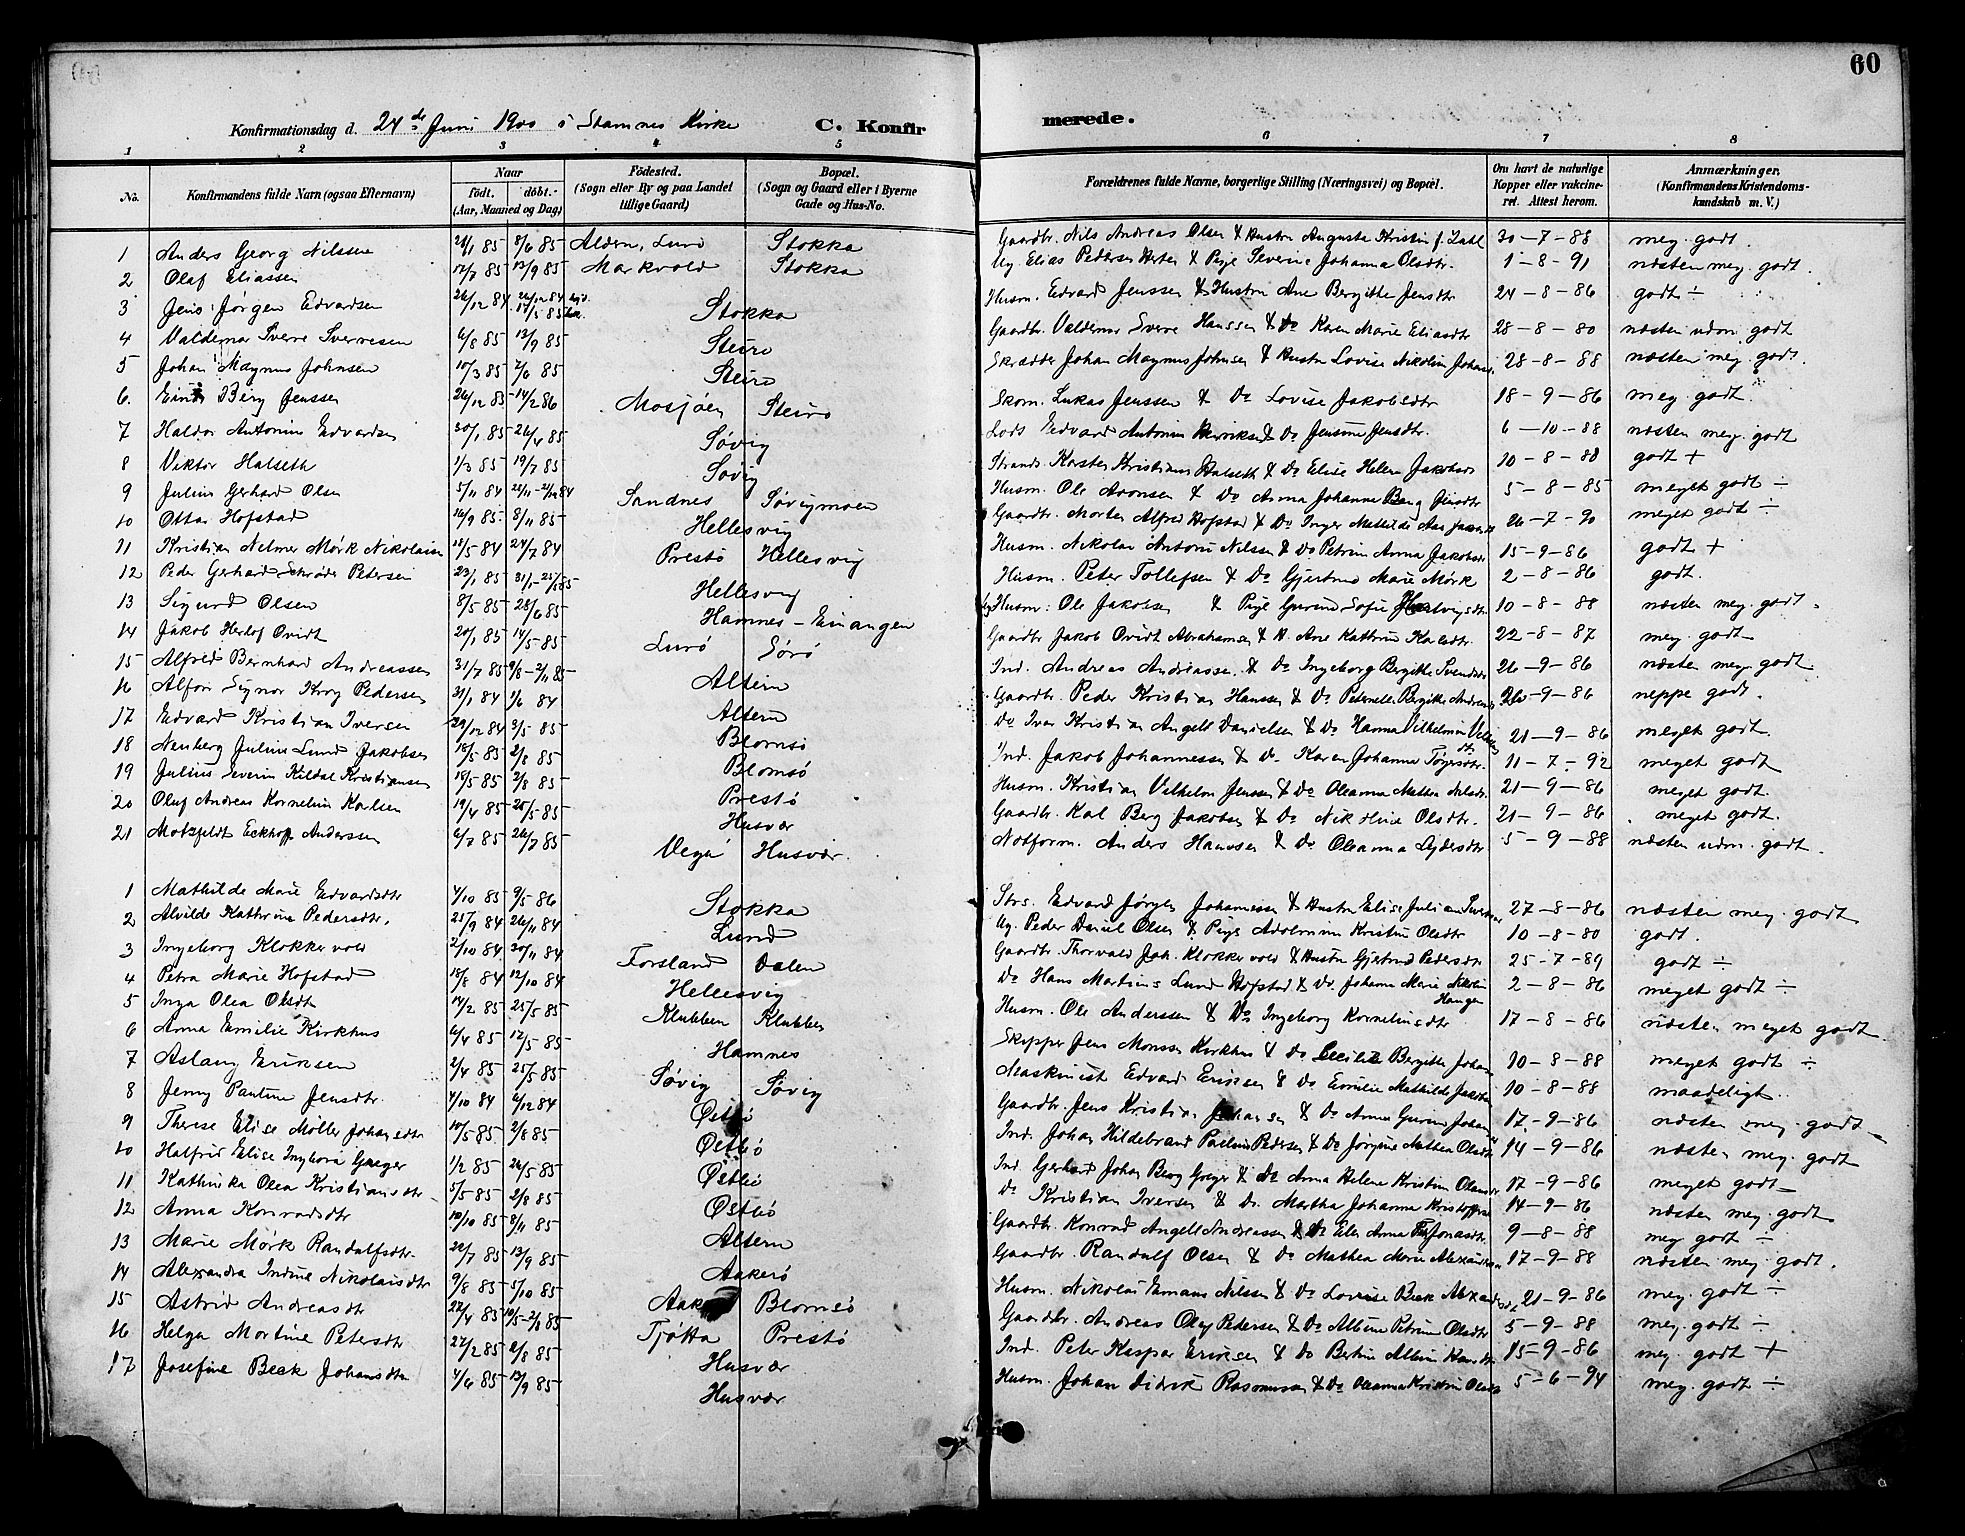 60
Konfirmationsdag d. 24de Juni 1900 i Stamnes Kirke C. Konfirmerede.
1 2 3 4 5 6 7 8
No. Konfirmandens fulde Navn (ogsaa Efternavn) Naar födt. döbt. (Aar, Maaned og Dag) Födested. (Sogn eller By og paa Landet tillige Gaard) Bopæl. (Sogn og Gaard eller i Byerne Gade og Hus-No. Forældrenes fulde Navne, borgerlige Stilling (Næringsvei) og Bopæl. Om havt de naturlige Kopper eller vakcineret. Attest herom. Anmærkninger. (Konfirmandens Kristendomskundskab m. V.)
1 Anders Georg Nilssen 8/6 85 Lurö Stokka Gaardbr. Nils Andreas Olsen & Hustru Auguste Kristin f. Zahl 30-7-88 meg. godt.
2 Olaf Eliassen 12/7 85 13/9 85 Markvold Stokka Ug. Elias Pedersen & Pige Severine Johanna Olsdtr. 1-8-91 næsten meg. godt.
3 Jens Jørgen Edvardsen 26/12 84 Stokka Husm. Edvard Jenssen & Hustru Ane Bergitte Jensdtr 24-8-86 godt ÷
4 Valdemar Sverre Sverresen 6/8 85 13/9 85 Steiro Gaardbr. Valdemar Sverre Hanssen & Do Karen Marie Eliasdtr 28-8-80 næsten udm. godt
5 Johan Magnus Johnsen 10/3 85 7/6 85 Steiro Skrædder Johan Magnus Johnsen & Hustru Lovise Nikoline 28-8-88 næsten meg. godt.
6. Berg Jenssen 26/12 85 14/2 86 Mosjøen Steiro Skom. Lukas Jenssen & Do Lovise Jakobsdtr 18-9-86 meg. godt.
7 Haldor Antonius Edvardsen 30/1 85 26/4 85 Søvig Lods Edvard Antonius Henriksen & Do Jensine Jensdtr. 6-10-88 næsten meg. godt
8 Viktor Halseth 1/3 85 19/7 85 Søvig Strands. Karsten Kristian Halseth & Do Elise Helene Jakobsdr 10-8-88 godt +
9 Julius Gerhard Olsen 5/11 84 Sandnes Søvigmoen Husm. Ole Aronsen & Do Anna Johanne Berg Jensdtr 5-8-85 meget godt ÷
10 Ottar Hofstad 16/9 85 8/11 85 Hellesvig Gaardbr. Morten Alfred Hofstad & Do Inger Mathilde 26-7-90 meget godt ÷
11 Kristian Nelmer Mörk Nikolaisen 18/5 84 24/7 84 Prestö Hellesvig Husm. Nikolai Antoni Nilssen & Do Petrine Anna Jakobsdr 15-9-86 godt +
12 Peder Gerhard Schrøder Petersen 23/1 85 Hellesvig Husm. Peter Tollefsen & Do Gjertrud Marie Mörk 2-8-86 godt.
13 Sigurd Olsen 8/5 85 28/6 85 Hamnes - Husm: Ole Jakobsen & Pige Gurine Sofie Hartvigsdtr 10-8-88 næsten meg. godt.
14 Jakob Herlof Qvidt 20/1 85 14/5 85 Lurö Sörö Gaardbr Jakob Qvidt Abrahamsen & H. Ane Kathrine Karlsdtr. 22-8-87 meg. godt
15 Alfred Bernhard Andreassen 31/7 85 9/8-2/11 85 Altern Ind. Andreas Andreassen & Do Ingeborg Bergitte Svendsdtr 26-9-86 næsten meg. godt
16 Alfon Signor Krog Pedersen 31/1 84 1/6 84 Altern Gaardbr. Peder Kristian Hanssen & Do Petrnelle Bergitte 26-9-86 neppe godt.
17 Edvard Kristian Iversen 29/12 84 3/5 85 Blomsö Do Iver Kristian Angell Danielsen & Do Hanna Vilhelmine 21-9-86 meget godt
18 Nenberg Julius Lund Jakobsen 18/5 85 2/8 85 Blomsö Ind. Jakob Johannessen & Do. Karen Johanna 11-7-92 meget godt
19 Julius Severin Kildal Kristiansen 18/5 85 2/8 85 Prestö Husm. Kristian Vilhelm Jenssen & Do Oleanna Mathea Nilsdr. 21-9-86 meget godt.
20 Oluf Andreas Kornelius Karlsen 19/4 85 25/5 85 Husvær Gaardbr. Karl Berg Jakobsen & Do Nikoline Olsdtr. 21-9-86 meget godt.
21 Motzfeldt Eckhoff Anderssen 6/7 85 26/7 85 Vega Husvær. Notform. Anders Hanssen & Do Oleanna Lydersdtr 5-9-88 næsten udm. godt.
1 Mathilde Marie Edvardsdtr 4/10 85 9/5 86 Stokka Strs. Edvard Jørgen Johannessen & Hustru Elise Juliane 27-8-86 næsten meg. godt
2 Alvilde Kathrine Pedersdtr. 25/9 84 26/11 84 Lund Ug. Peder Daniel Olsen & Pige Adolmine Kristine Olsdtr 10-8-80 godt.
3 Ingeborg Klokkervold 2/10 84 30/11 84 Forsland Dalen Gaardbr. Thorvald Joh. Klokkervold & Hustru Gjertrud Pedersdtr 25-7-89 godt ÷
4 Petra Marie Hofstad 18/8 84 12/10 84 Hellesvig Do Hans Martinus Lund Hofstad & Do. Johanna Marie Nikoline Haugen 2-8-86 meget godt ÷
5 Inga Olea Olsdtr 14/2 85 25/5 85 Klubben Klubben Husm. Ole Anderssen & Do Ingeborg Korneliusdtr 17-8-86 næsten meget godt
6 Anna Emilie Kirkhus 6/4 85 12/5 85 Hamnes Skipper Jens Monssen Kirkhus & Do Cecilie Bergitte 10-8-88 meget godt ÷
7 Aslaug Eriksen 2/4 85 25/5 85 Søvig Søvig Maskinist Edvard Eriksen & Do Emilie Mathilde 10-8-88 maadeligt.
8 Jenny Pauline Jensdtr. 4/10 84 6/12 84 Østbö Gaardbr. Jens Kristian Johansen & Do Anna Gurine 17-9-86 næsten meg. godt
9 Therese Elise Møller Johansdtr 10/5 85 2/8 85 Østbö Ind. Johan Hildebrand Paulin Pedersen & Do Jørgine Mathea Olsdtr 14-9-86 næsten meg. godt
10 Halfrid Elise Ingeborg Greger 1/2 85 26/5 85 Østbö Ind. Gerhard Johan Berg Greger & Do Anna Helene Kristine 17-9-86 meget godt
11 Kathinka Olea Kristiansdtr 5/5 85 2/8 85 Østbö Do Kristian Iversen & Do. Martha Johanna 14-9-86 næsten meg. godt
12 Anna Konradsdtr 10/10 85 8/11 85 Altern Gaardbr. Konrad Angell Andreassen & Do Elen Anna 9-8-88 meg godt ÷
13 Marie Mörk Randulfsdtr. 22/7 85 13/9 85 Aakerö Gaardbr. Randulf Olsen & Do Mathea Marie 17-9-88 næsten meg. godt.
14 Alexandra Indine Nikolaisdtr 9/8 85 5/10 85 Blomsö Husm. Nikolai Emans Nilssen & Do Lovise Beck 21-9-86 meg. godt ÷
15 Astrid Andreasdtr 27/4 85 Tjøtta Prestö Gaardbr. Andreas Olaf Pedersen & Do Albine Petrine Olsdtr 5-9-88 meg. godt ÷
16 Helga Martine Petersdtr. 27/2 85 2/8 85 Husvær Ind. Peter Kaspar Eriksen & Do Bertine Albine 15-9-86 meg. godt +
17 Josefine Beck Johansdtr 4/6 85 13/9 85 Husvær Husm. Johan Didrik Rasmussen & Do Oleanna Kristine 5-6-94 meg. godt ÷